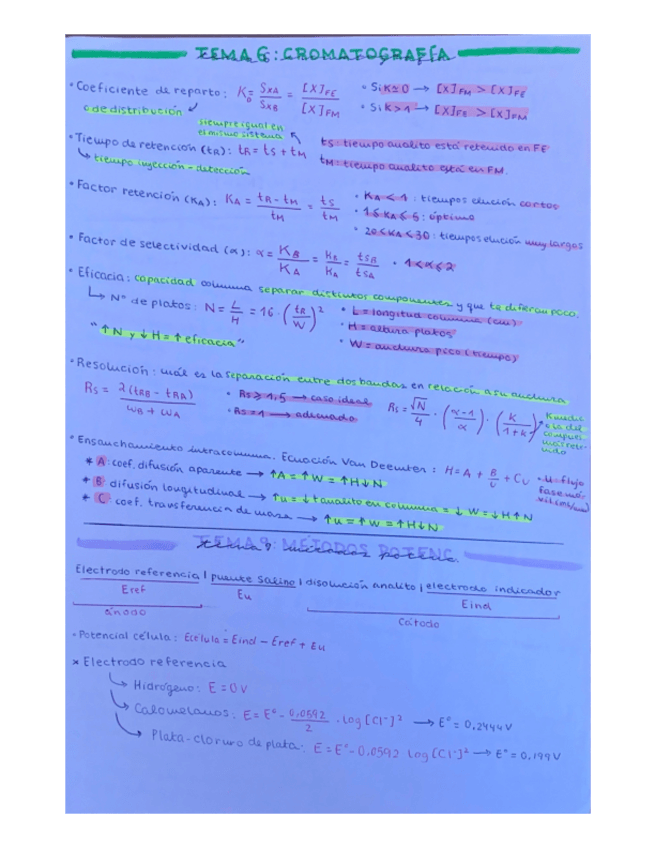 TEMA 6: CROMATOGRAFÍA
• Coeficiente de reparto: K = SxA / SxB = [X]FE / [X]FM • Si K≃0 → [X]FM > [X]FE
o de distribución • Si K>1 → [X]FE > [X]FM
siempre igual en el mismo sistema
• Tiempo de retención (tR): tR = tS + tM tS: tiempo analito está retenido en FE
↳ tiempo inyección - detección tM: tiempo analito está en FM.
• Factor retención (KA): KA = tR - tM / tM = tS / tM • KA < 1: tiempos elución cortos
• 1≤KA≤5: óptimo
• 20<KA<30: tiempos elución muy largos
• Factor de selectividad (α): α = KB / KA = kB / kA = tSB / tSA • 1<α≤2
• Eficacia: capacidad columna separar distintos componentes y que tR difieran poco.
↳ Nº de platos: N = L / H = 16 · (tR / W)² • L = longitud columna (cm)
• H = altura platos
"↑N y ↓H = ↑eficacia" • W = anchura pico (tiempo)
• Resolución: cuál es la separación entre dos bandas en relación a su anchura
RS = 2(tRB - tRA) / WB + WA • RS ≥ 1,5 → caso ideal RS = √N / 4 · (α-1 / α) · (K / 1+K)
• RS = 1 → adecuado
• Ensanchamiento intracolumna. Ecuación Van Deemter: H = A + B / U + CU • u = flujo fase móvil (ms/cm)
* A: coef. difusión aparente → ↑A = ↑W = ↑H↓N
* B: difusión longitudinal → ↑u = ↓tanalito en columna = ↓W = ↓H↑N
* C: coef. transferencia de masa → ↑u = ↑W = ↑H↓N
TEMA 9: MÉTODOS POTENC.
Electrodo referencia | puente salino | disolución analito | electrodo indicador
Eref Eu Eind
ánodo Cátodo
- Potencial célula: Ecélula = Eind - Eref + Eu
* Electrodo referencia
↳ Hidrógeno: E = 0V
↳ Calomelanos: E = E° - 0,0592 / 2 · log [Cl⁻]² → E° = 0,2444V
↳ Plata-cloruro de plata: E = E° - 0,0592 log [Cl⁻]² → E° = 0,199V